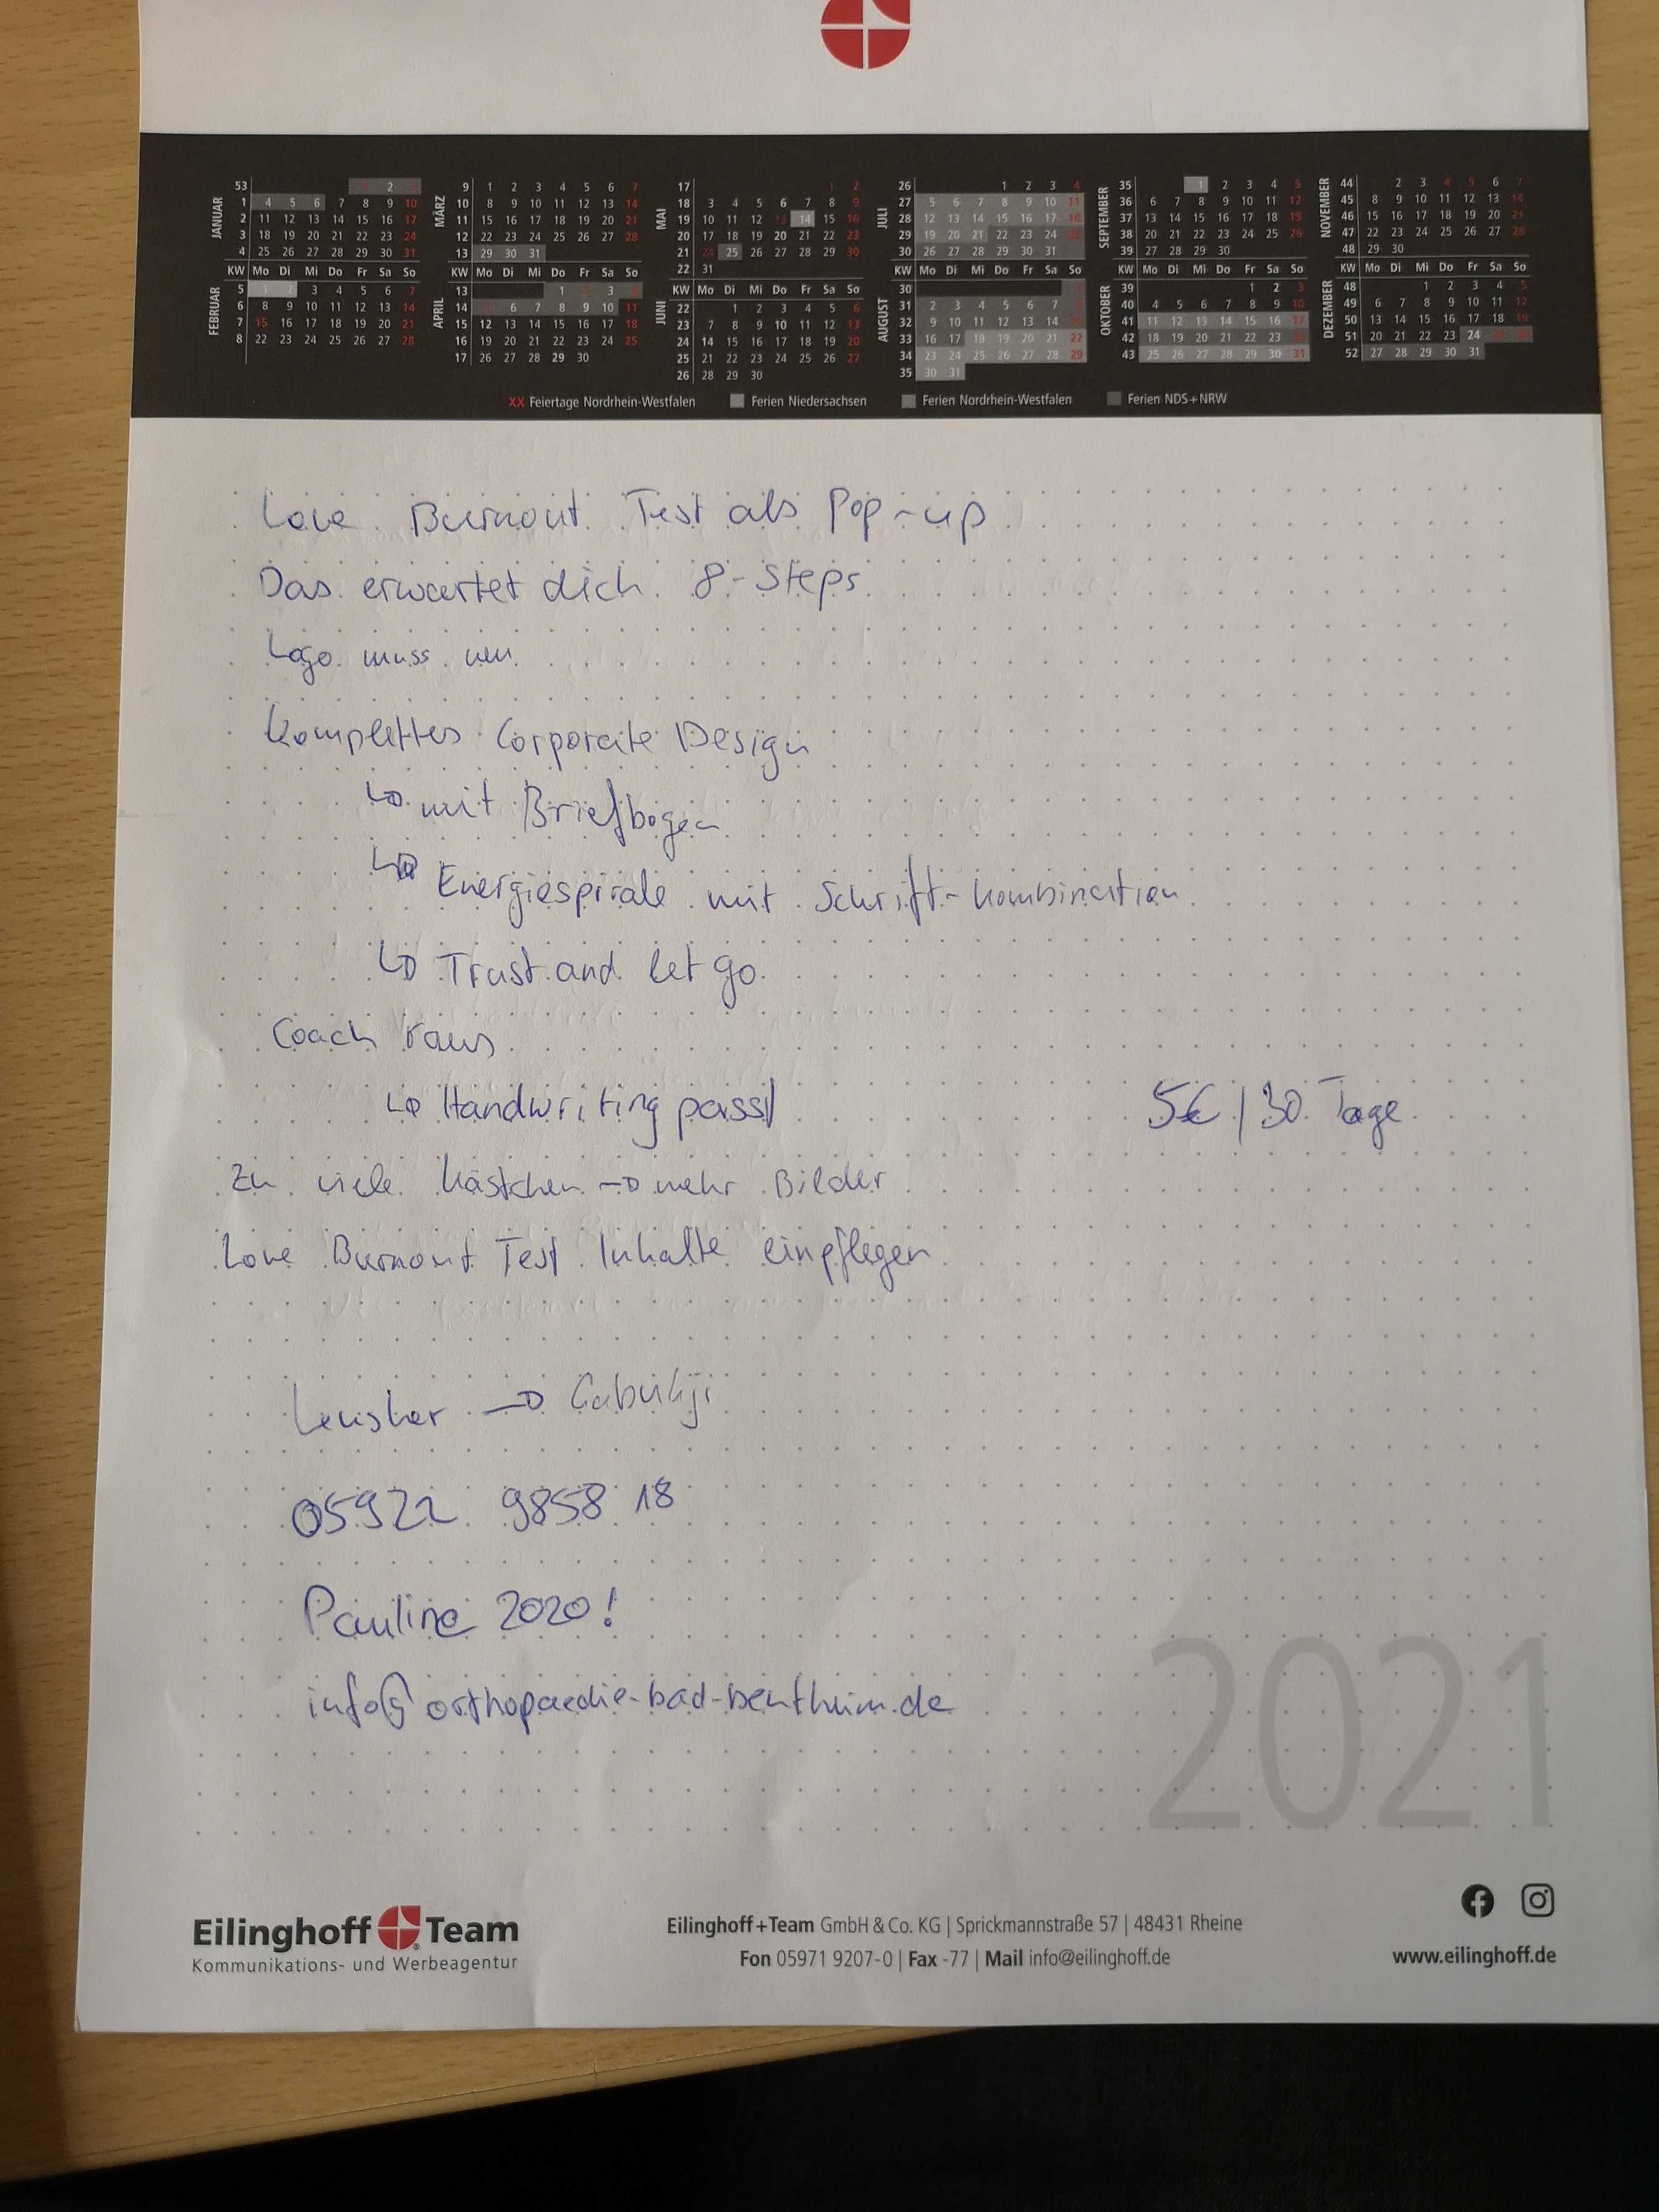 JANUAR
53 1 2 3
1 4 5 6 7 8 9 10
2 11 12 13 14 15 16 17
3 18 19 20 21 22 23 24
4 25 26 27 28 29 30 31
KW Mo Di Mi Do Fr Sa So
FEBRUAR
5 1 2 3 4 5 6 7
6 8 9 10 11 12 13 14
7 15 16 17 18 19 20 21
8 22 23 24 25 26 27 28
MÄRZ
9 1 2 3 4 5 6 7
10 8 9 10 11 12 13 14
11 15 16 17 18 19 20 21
12 22 23 24 25 26 27 28
13 29 30 31
KW Mo Di Mi Do Fr Sa So
APRIL
13 1 2 3 4
14 5 6 7 8 9 10 11
15 12 13 14 15 16 17 18
16 19 20 21 22 23 24 25
17 26 27 28 29 30
MAI
17 1 2
18 3 4 5 6 7 8 9
19 10 11 12 13 14 15 16
20 17 18 19 20 21 22 23
21 24 25 26 27 28 29 30
22 31
KW Mo Di Mi Do Fr Sa So
JUNI
22 1 2 3 4 5 6
23 7 8 9 10 11 12 13
24 14 15 16 17 18 19 20
25 21 22 23 24 25 26 27
26 28 29 30
JULI
26 1 2 3 4
27 5 6 7 8 9 10 11
28 12 13 14 15 16 17 18
29 19 20 21 22 23 24 25
30 26 27 28 29 30 31
KW Mo Di Mi Do Fr Sa So
AUGUST
30 1
31 2 3 4 5 6 7 8
32 9 10 11 12 13 14 15
33 16 17 18 19 20 21 22
34 23 24 25 26 27 28 29
35 30 31
SEPTEMBER
35 1 2 3 4 5
36 6 7 8 9 10 11 12
37 13 14 15 16 17 18 19
38 20 21 22 23 24 25 26
39 27 28 29 30
KW Mo Di Mi Do Fr Sa So
OKTOBER
39 1 2 3
40 4 5 6 7 8 9 10
41 11 12 13 14 15 16 17
42 18 19 20 21 22 23 24
43 25 26 27 28 29 30 31
NOVEMBER
44 1 2 3 4 5 6 7
45 8 9 10 11 12 13 14
46 15 16 17 18 19 20 21
47 22 23 24 25 26 27 28
48 29 30
KW Mo Di Mi Do Fr Sa So
DEZEMBER
48 1 2 3 4 5
49 6 7 8 9 10 11 12
50 13 14 15 16 17 18 19
51 20 21 22 23 24 25 26
52 27 28 29 30 31
XX Feiertage Nordrhein-Westfalen Ferien Niedersachsen Ferien Nordrhein-Westfalen Ferien NDS+NRW
Love Burnout Test als Pop-up
Das erwartet dich 8-Steps
Logo muss neu
Komplettes Corporate Design
↳ mit Briefbogen
↳ Energiespirale mit Schrift-Kombination
↳ Trust and let go
Coach raus
↳ Handwriting passt 5€ | 30 Tage
Zu viele Kästchen → mehr Bilder
Love Burnout Test Inhalte einpflegen
→
05922 9858 18
Pauline 2020!
info@orthopaedie-bad-bentheim.de
2021
Eilinghoff Team
Kommunikations- und Werbeagentur
Eilinghoff+Team GmbH & Co. KG | Sprickmannstraße 57 | 48431 Rheine
Fon 05971 9207-0 | Fax -77 | Mail info@eilinghoff.de
www.eilinghoff.de